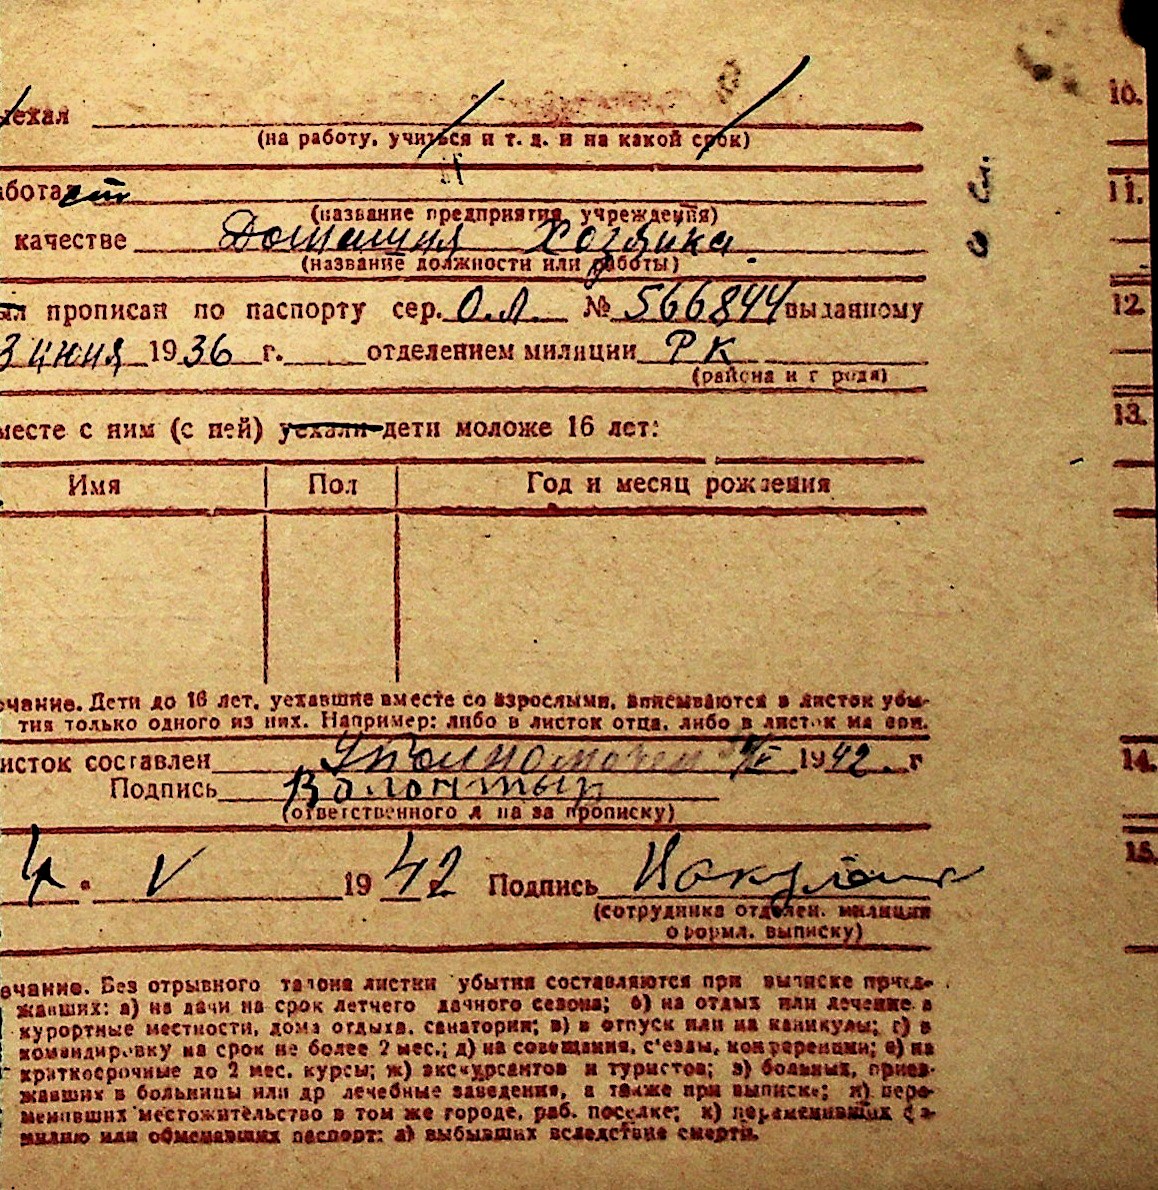 уехал
(на работу, учиться и т. д. и на какой срок)
10.
аботает
(название предприятия, учреждения)
11.
качестве Домашняя Хозяйка.
(название должности или работы)
ыл прописан по паспорту сер. О.Л. № 566844 выданному
12.
3 июня 1936 г. отделением милиции РК
(района и города)
месте с ним (с ней) уехали дети моложе 16 лет:
13.
Имя Пол Год и месяц рождения
ечание. Дети до 16 лет, уехавшие вместе со взрослыми, вписываются в листок убы-
тия только одного из них. Например: либо в листок отца, либо в листок матери.
исток составлен 1942. г
14.
Подпись
(ответственного лица за прописку)
4. V 1942 Подпись
15.
(сотрудника отделен. милиции
оформл. выписку)
ечание. Без отрывного талона листки убытия составляются при выписке приез-
жавших: а) на дачи на срок летнего дачного сезона; б) на отдых или лечение в
курортные местности, дома отдыха, санатории; в) в отпуск или на каникулы; г) в
командировку на срок не более 2 мес.; д) на совещания, с'езды, конференции; е) на
краткосрочные до 2 мес. курсы; ж) экскурсантов и туристов; з) больных, приез-
жавших в больницы или др лечебные заведения, а также при выписке; и) пере-
менивших местожительство в том же городе, раб. поселке; к) переменивших фа-
милию или обменявших паспорт; л) выбывших вследствие смерти.